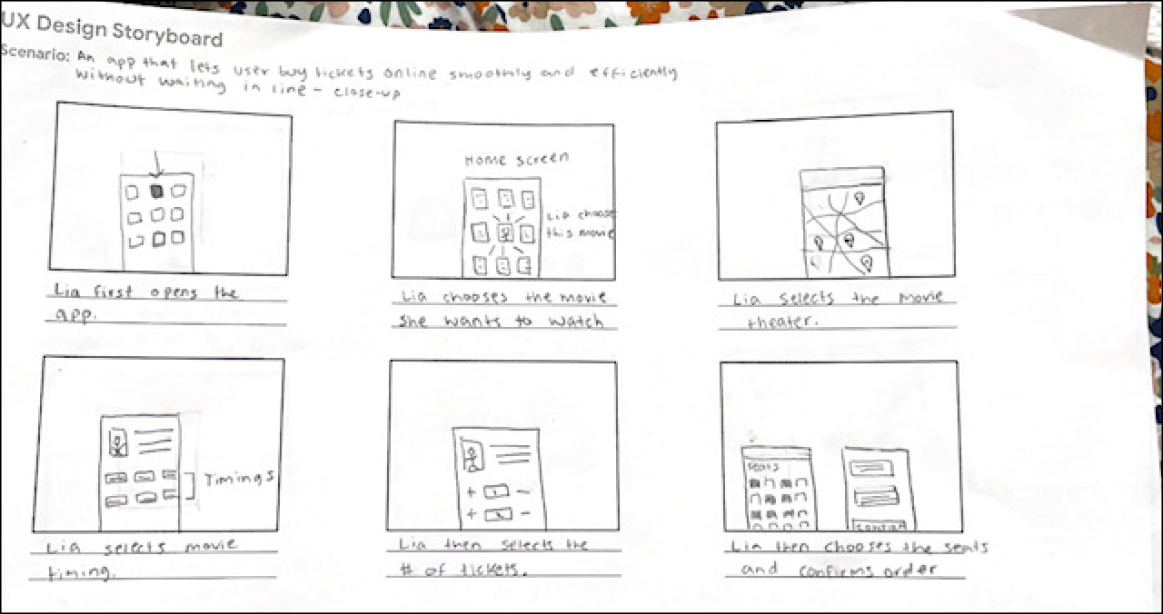 UX Design Storyboard
Scenario: An app that lets user buy tickets online smoothly and efficiently
without waiting in line - close-up
Lia first opens the
app.
Home screen
Lia choose
this movie
Lia chooses the movie
she wants to watch
Lia selects the movie
theater.
Timings
Lia selects movie
timing.
+ 1 -
+ -
Lia then selects the
# of tickets.
Seats
Confirm
Lia then chooses the seats
and confirms order